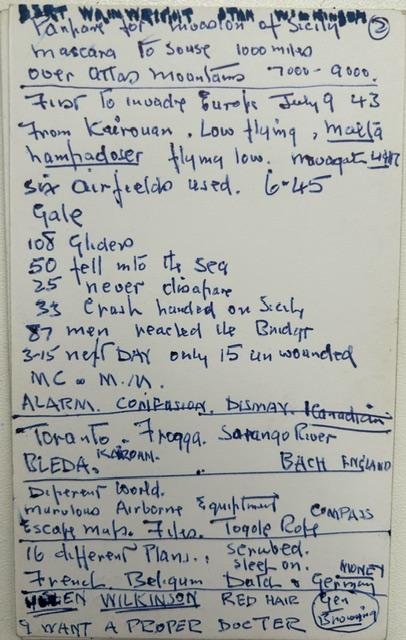 BERT WAINWRIGHT STAN WILKINSON
Panfare for invasion of Sicily ②
mascara To Souse 1000 miles
over atlas mountains 7000 - 9000.
First To invade Europe July 9 43
From Kairouan. Low flying, malta
flying low.
six airfields used. 6-45
Gale
108 Gliders
50 fell into the Sea
25 never
33 Crash handed on Sicily
87 men reached the Bridge
3-15 next DAY only 15 un wounded
MC = M.M.
ALARM. CONFUSION. DISMAY. Canadian
Toranto. Frogga. Sarango River
BLEDA. KAIROAN. BACH ENGLAND
Diferent World.
marulous Airborne Equiptment COMPASS
Escape maps. Files. Togole Rope
16 different Plans. scrubed.
sleep on. MONEY
French Beligum Dutch & German
HELEN WILKINSON RED HAIR Gen Browning
I WANT A PROPER DOCTER